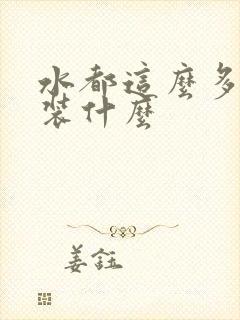 水都這麼多
裝什麼
姜鈺